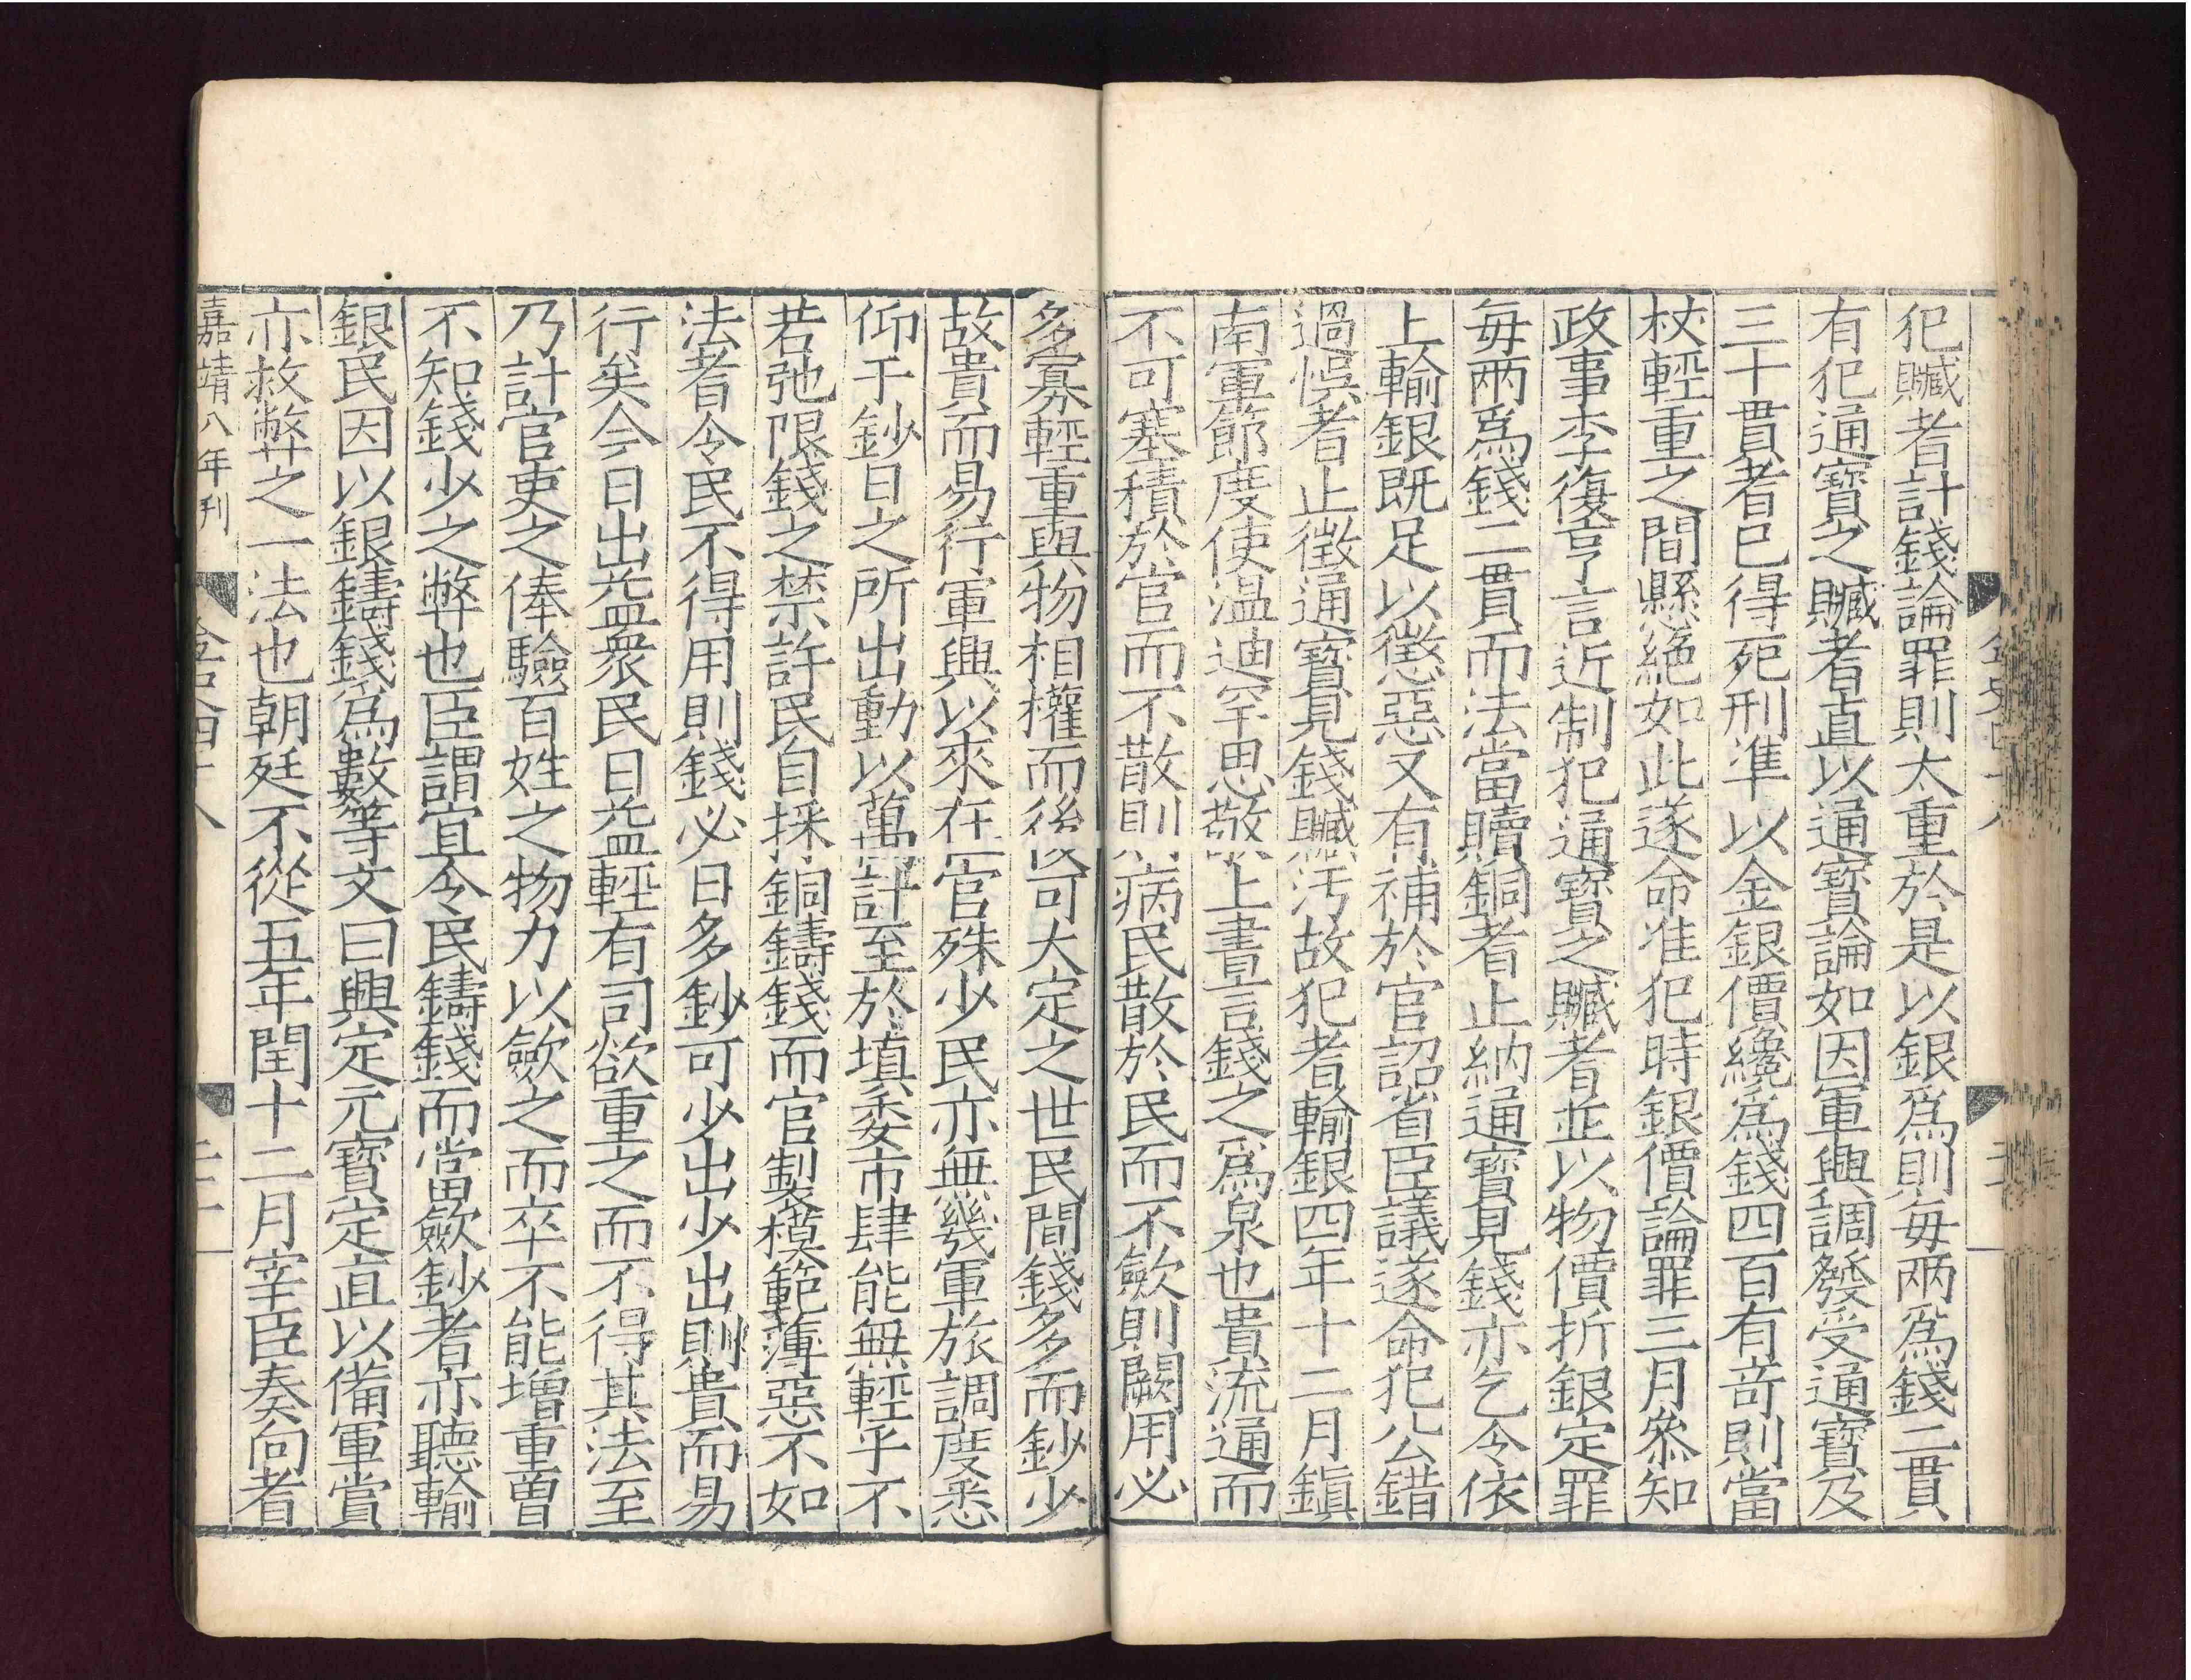 犯贓者計錢論罪則太重於是以銀爲則每兩爲錢二貫
有犯通寶之贓者直以通寶論如因軍興調發受通寶及
三十貫者已得死刑準以金銀價纔爲錢四百有竒則當
杖輕重之間懸絶如此遂命准犯時銀價論罪三月叅知
政事李復亨言近制犯通寶之贓者並以物價折銀定罪
每兩爲錢二貫而法當贖銅者止納通寶見錢亦乞令依
上輸銀既足以懲惡又有補於官詔省臣議遂命犯公錯
過悮者止徵通寶見錢贓汚故犯者輸銀四年十二月鎮
南軍節度使温迪罕思敬上書言錢之爲泉也貴流通而
不可塞積於官而不散則病民散於民而不歛則闕用必
多寡輕重與物相權而後可大定之世民間錢多而鈔少
故貴而易行軍興以來在官殊少民亦無幾軍旅調度悉
仰于鈔日之所出動以萬計至於填委市肆能無輕乎不
若弛限錢之禁許民自採銅鑄錢而官製模範薄惡不如
法者令民不得用則錢必日多鈔可少出少出則貴而易
行矣今日出益衆民日益輕有司欲重之而不得其法至
乃計官吏之俸驗百姓之物力以歛之而卒不能增重曽
不知錢少之弊也臣謂宜令民鑄錢而當歛鈔者亦聽輸
銀民因以銀鑄錢爲數等文曰興定元寶定直以備軍賞
亦救弊之一法也朝廷不從五年閏十二月宰臣奏向者
嘉靖八年刊